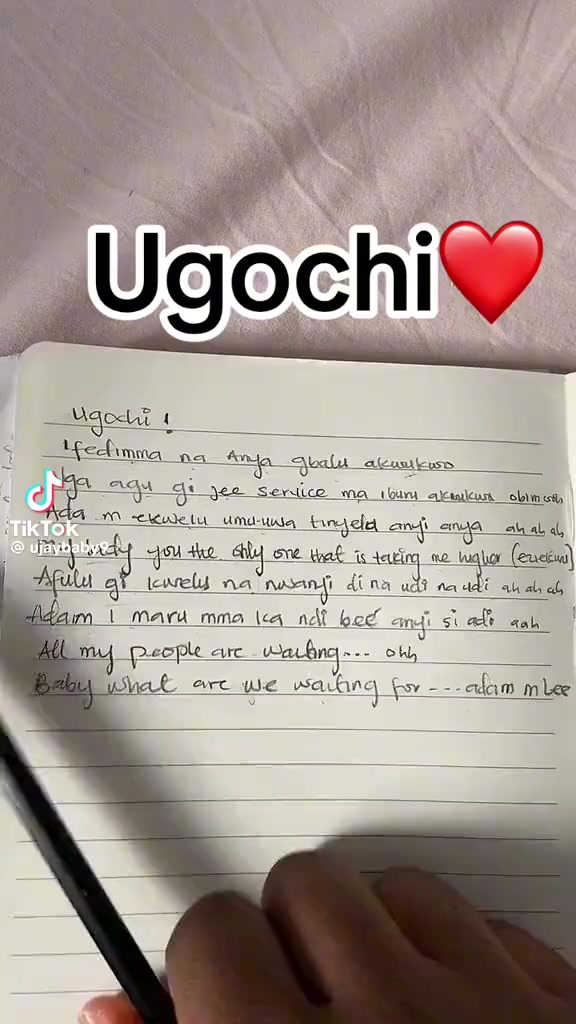 Ugochi❤️
Ugochi!
Ifedimma na Anya gbalu akwukwo
Nga agu gi jee service ma iburu akwukwo obim ooh
Ada m ekwelu umu-uwa tinyelu anyi anya ah ah ah
TikTok
@ ujaybaby9
My lady you the only one that is taking me higher (ezuekwu)
Afulu gi kwelu na nwanyi di na udi na udi ah ah ah
Adam I maru mma ka ndi bee anyi si adi aah
All my people are waiting... ohh
Baby what are we waiting for --- adam m bee